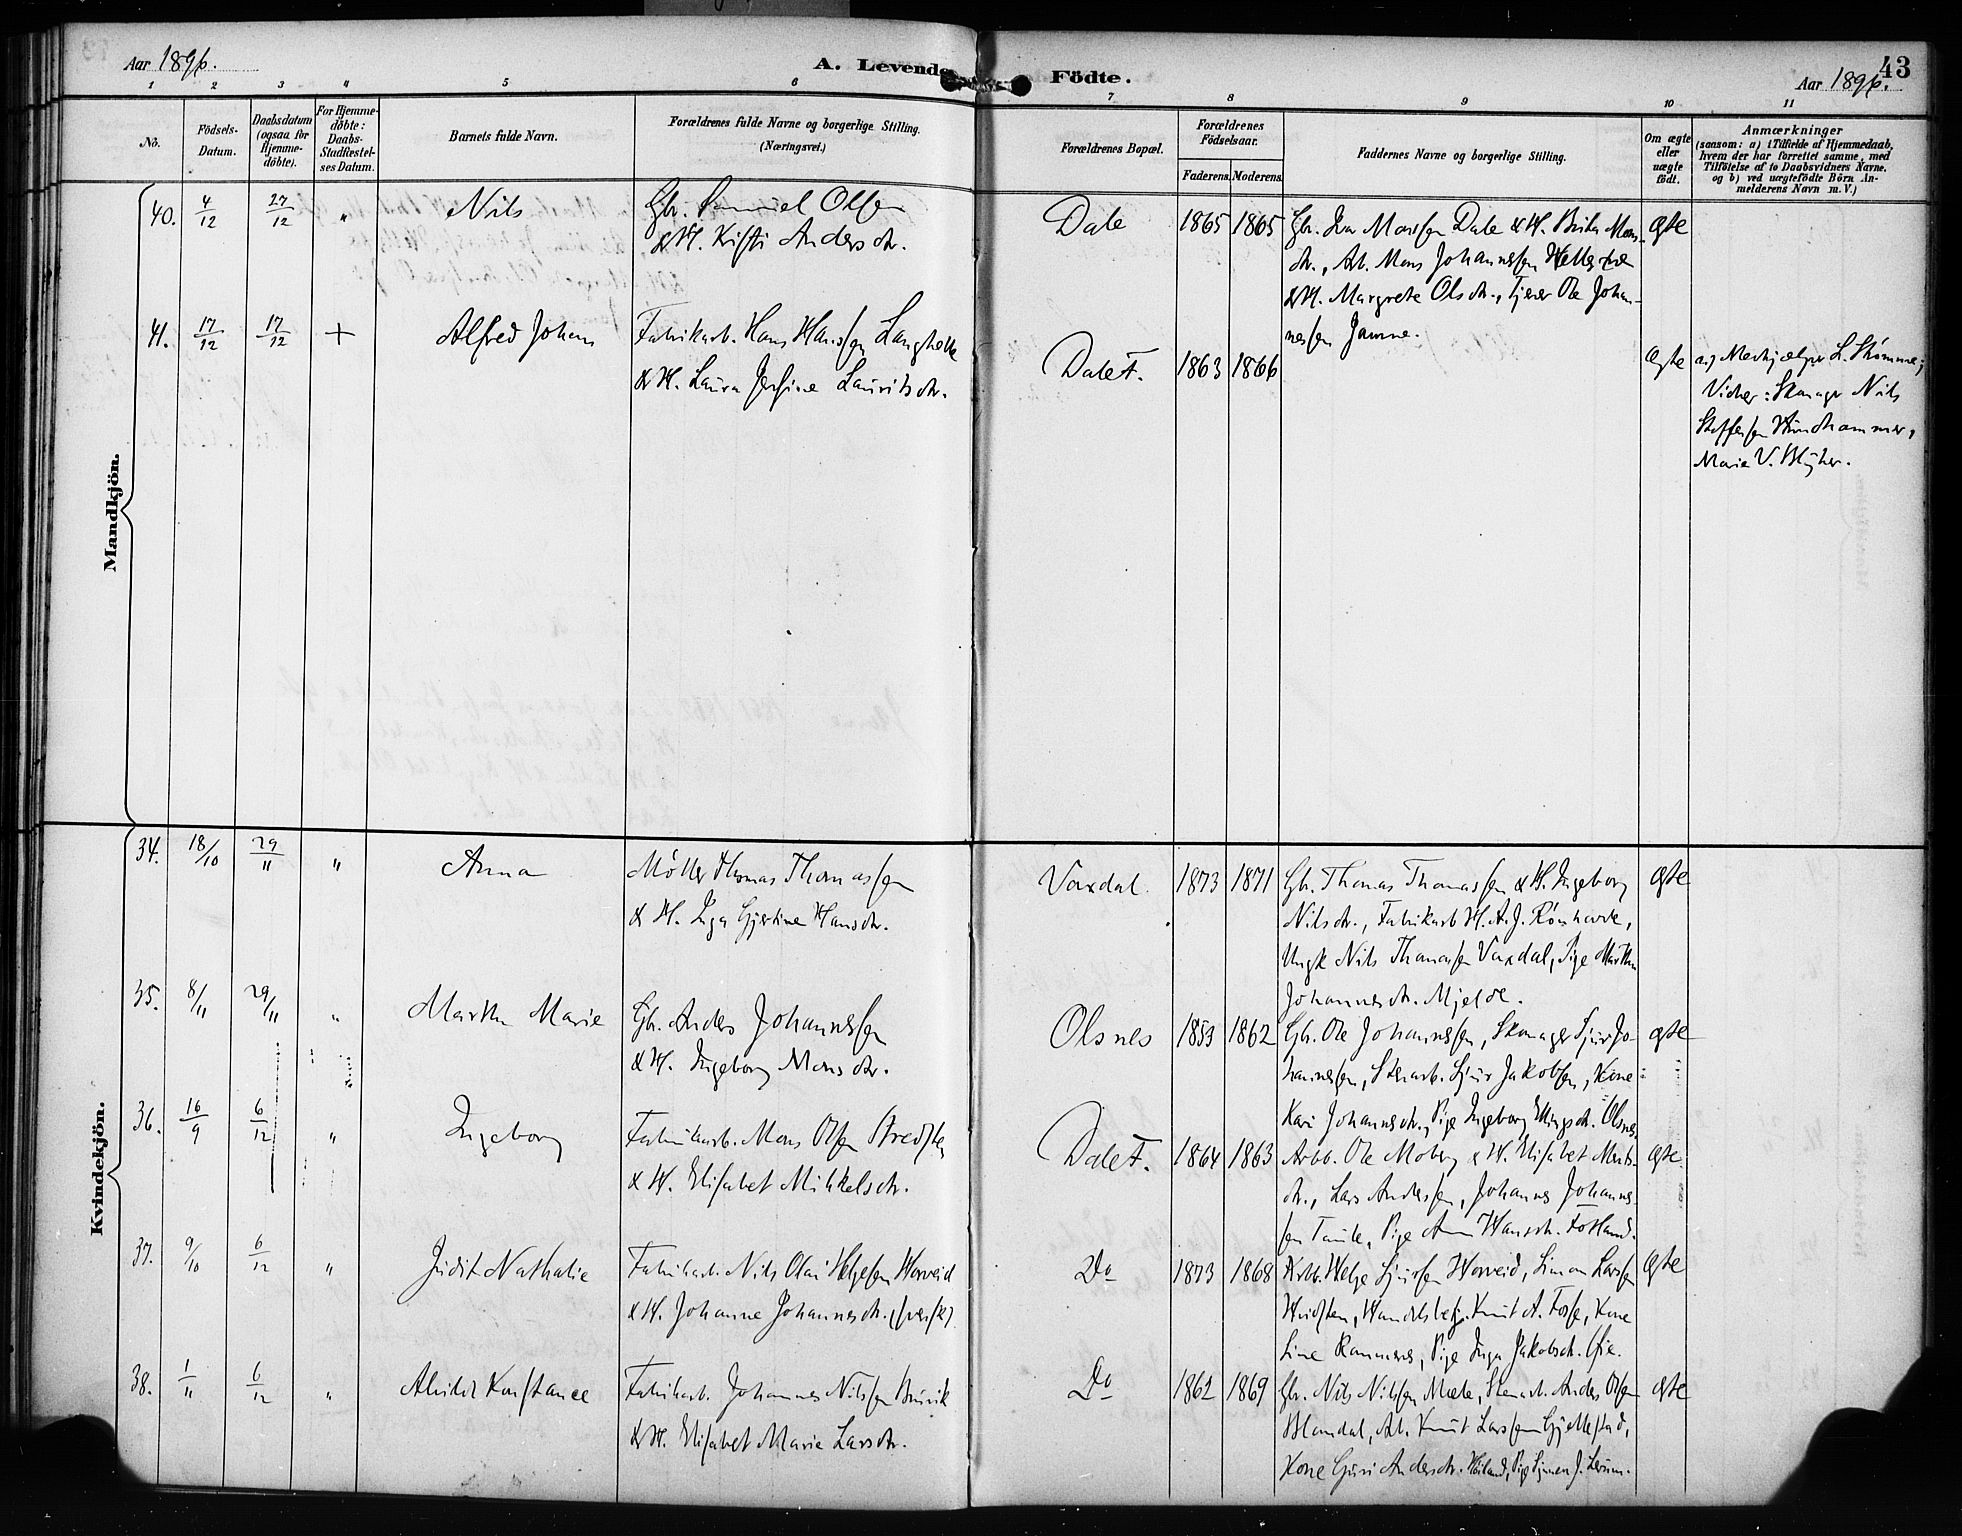 Aar 1896.
A. Levende Födte.
Aar 1896.
43
1 2 3 " 5 6 7 8 9 10 11
No.
Födsels-
Datum.
Daabsdatum
(ogsaa for
Hjemme-
döbte).
For Hjemme-
döbte:
Daabs-
Stadfæstel-
ses Datum.
Barnets fulde Navn.
Forældrenes fulde Navne og borgerlige Stilling.
(Næringsvei.)
Forældrenes Bopæl.
Forældrenes
Födselsaar.
Faderens. Moderens.
Faddernes Navne og borgerlige Stilling.
Om ægte
eller
uægte
födt.
Anmærkninger
(saasom: a) i Tilfælde af Hjemmedaab,
hvem der har forrettet samme, med
Tilföielse af to Daabsvidners Navne,
og b) ved uægtefödte Börn An-
melderens Navn m. V.)
Mandkjön.
40. 4/12 27/12 " Nils
Gbr. Samuel Olsen
& H. Kristi Andersdtr.
Dale 1865 1865
Gbr. Ivar Monsen Dale & H. Brita Mons-
dtr., Arb. Mons Johannessen
& H. Margrete Olsdtr., Tjener Ole Johan-
nessen Jamne.
ægte
41. 17/12 17/12 + Alfred Johan
Fabrikarb. Hans Hansen Langhelle
& H. Laura Jensine Lauritsdtr.
Dale F. 1863 1866
ægte
a) Medhjælper L. Skimme;
Vidner: Skomager Nils
Steffensen Hundhammer,
Marie V. Blyher.
Kvindekjön.
34. 18/10 29/11 " Anna
Møller Thomas Thomassen
& H. Inga Gjertine Hansdtr.
Vaxdal 1873 1871
Gbr. Thomas Thomassen & H. Ingeborg
Nilsdtr., Fabrikarb H. A. J. Rönhovde,
Ungk Nils Thomassen Vaxdal, Pige Martha
Johannesdtr. Mjelde.
ægte
35. 8/11 29/11 " Martha Marie
Gbr. Anders Johannessen
& H. Ingeborg Monsdtr.
Olsnes 1853 1862
Gbr. Ole Johannessen, Skomager Sjur Jo-
hannessen, Stenarb. Sjur Jakobsen, Kone
Kari Johannesdtr., Pige Ingeborg Ellingsdtr. Olsnes.
ægte
36. 16/9 6/12 " Ingeborg
Fabrikarb. Mons Olsen
& H. Elisabet Mikkelsdtr.
Dale F. 1864 1863
Arbb. Ole Moberg & H. Elisabet Monts-
dtr., Lars Andersen, Johannes Johannes-
sen Taule, Pige Anna Hansdtr. Fosland.
ægte.
37. 9/10 6/12 " Judit Nathalie
Fabrikarb. Nils Olai Helgesen Horveid
& H. Johanne Johannesdtr. (svensk)
Do 1873 1868
Arbb. Helge Sjursen Horveid, Simon Larsen
Handelsbetj. Knut A. Fosse, Kone
Line Rammeres, Pige Inga Jakobsdtr. Öie.
ægte
38. 1/11 6/12 " Alvilde Konstance
Fabrikarb. Johannes Nilssen Brüvik
& H. Elisabet Marie Larsdtr.
Do 1862 1869
Gbr. Nils Nilssen Mæle, Stenarb. Anders Olsen
Blomdal, Arb. Knut Larssen Gjellestad,
Kone Guri Andersdtr. Höiland, Pige Symen J. Lerum.
ægte